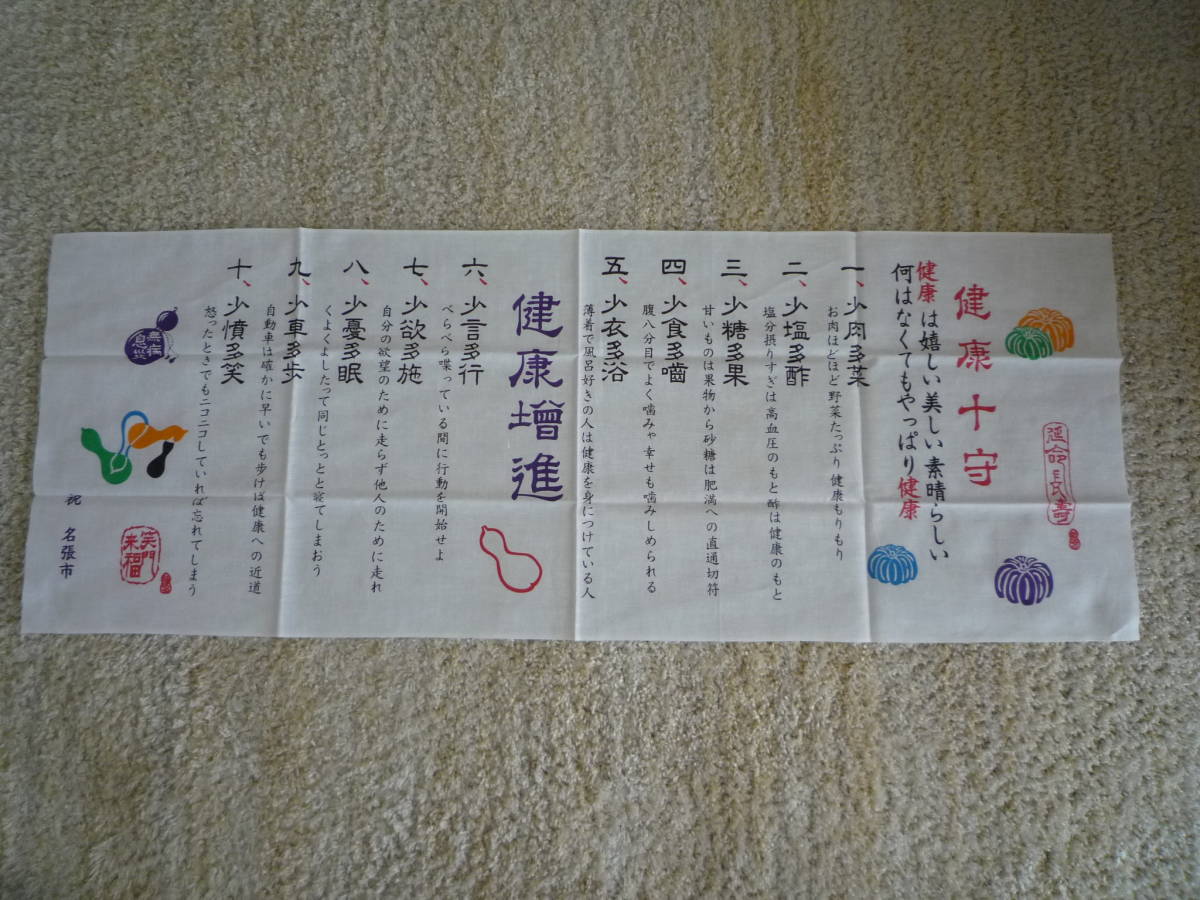 延命長寿
健康十守
健康は嬉しい美しい素晴らしい
何はなくてもやっぱり健康
一、少肉多菜
お肉ほどほど野菜たっぷり健康もりもり
二、少塩多酢
塩分摂りすぎは高血圧のもと酢は健康のもと
三、少糖多果
甘いものは果物から砂糖は肥満への直通切符
四、少食多嚙
腹八分目でよく噛みゃ幸せも噛みしめられる
五、少衣多浴
薄着で風呂好きの人は健康を身につけている人
健康増進
六、少言多行
べらべら喋っている間に行動を開始せよ
七、少欲多施
自分の欲望のために走らず他人のために走れ
八、少憂多眠
くよくよしたって同じとっとと寝てしまおう
九、少車多歩
自動車は確かに早いでも歩けば健康への近道
十、少憤多笑
怒ったときでもニコニコしていれば忘れてしまう
無病
息災
笑門
来福
祝 名張市